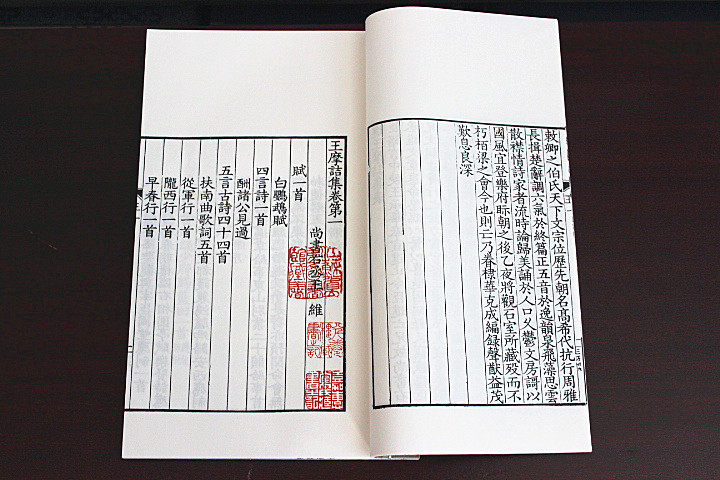 敕卿之伯氏天下文宗位歷先朝名高希代抗行周雅
長揖楚辭調六氣於終篇正五音於逸韻泉飛藻思雲
散襟情詩家者流時論歸美誦於人口久鬱文房謌以
國風宜登樂府眎朝之後乙夜將觀石室所藏歿而不
朽栢梁之會今也則亡乃眷棣華克成編錄聲猷益茂
歎息良深
王摩詰集卷第一
尚書右丞王維
賦一首
白鸚鵡賦
四言詩一首
酬諸公見過
五言古詩四十四首
扶南曲歌詞五首
從軍行一首
隴西行一首
早春行一首